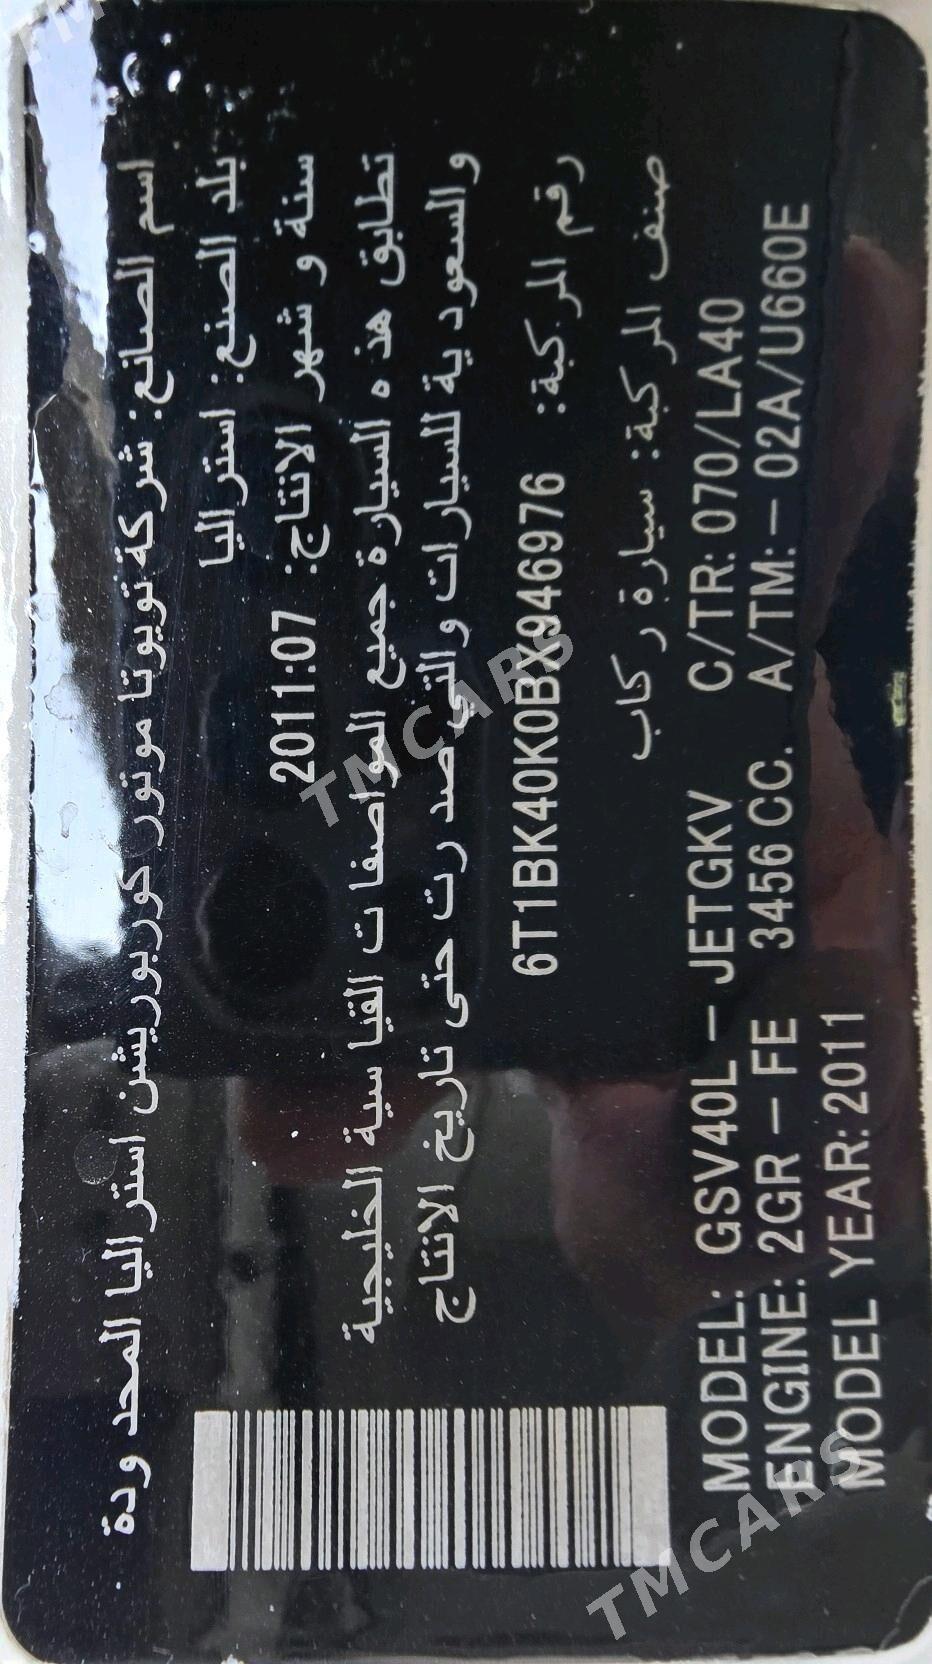 اسم الصانع: شركة تويوتا موتور كوربوريشن استراليا المحدودة
بلد الصنع: استراليا
سنة و شهر الانتاج: 2011:07
تطابق هذه السيارة جميع المواصفات القياسية الخليجية
والسعودية للسيارات والتي صدرت حتى تاريخ الانتاج
رقم المركبة: 6T1BK40K0BX946976
صنف المركبة: سيارة ركاب
MODEL: GSV40L – JETGKV C/TR: 070/LA40
ENGINE: 2GR – FE 3456 CC. A/TM: – 02A/U660E
MODEL YEAR: 2011
TMCARS
TMCARS